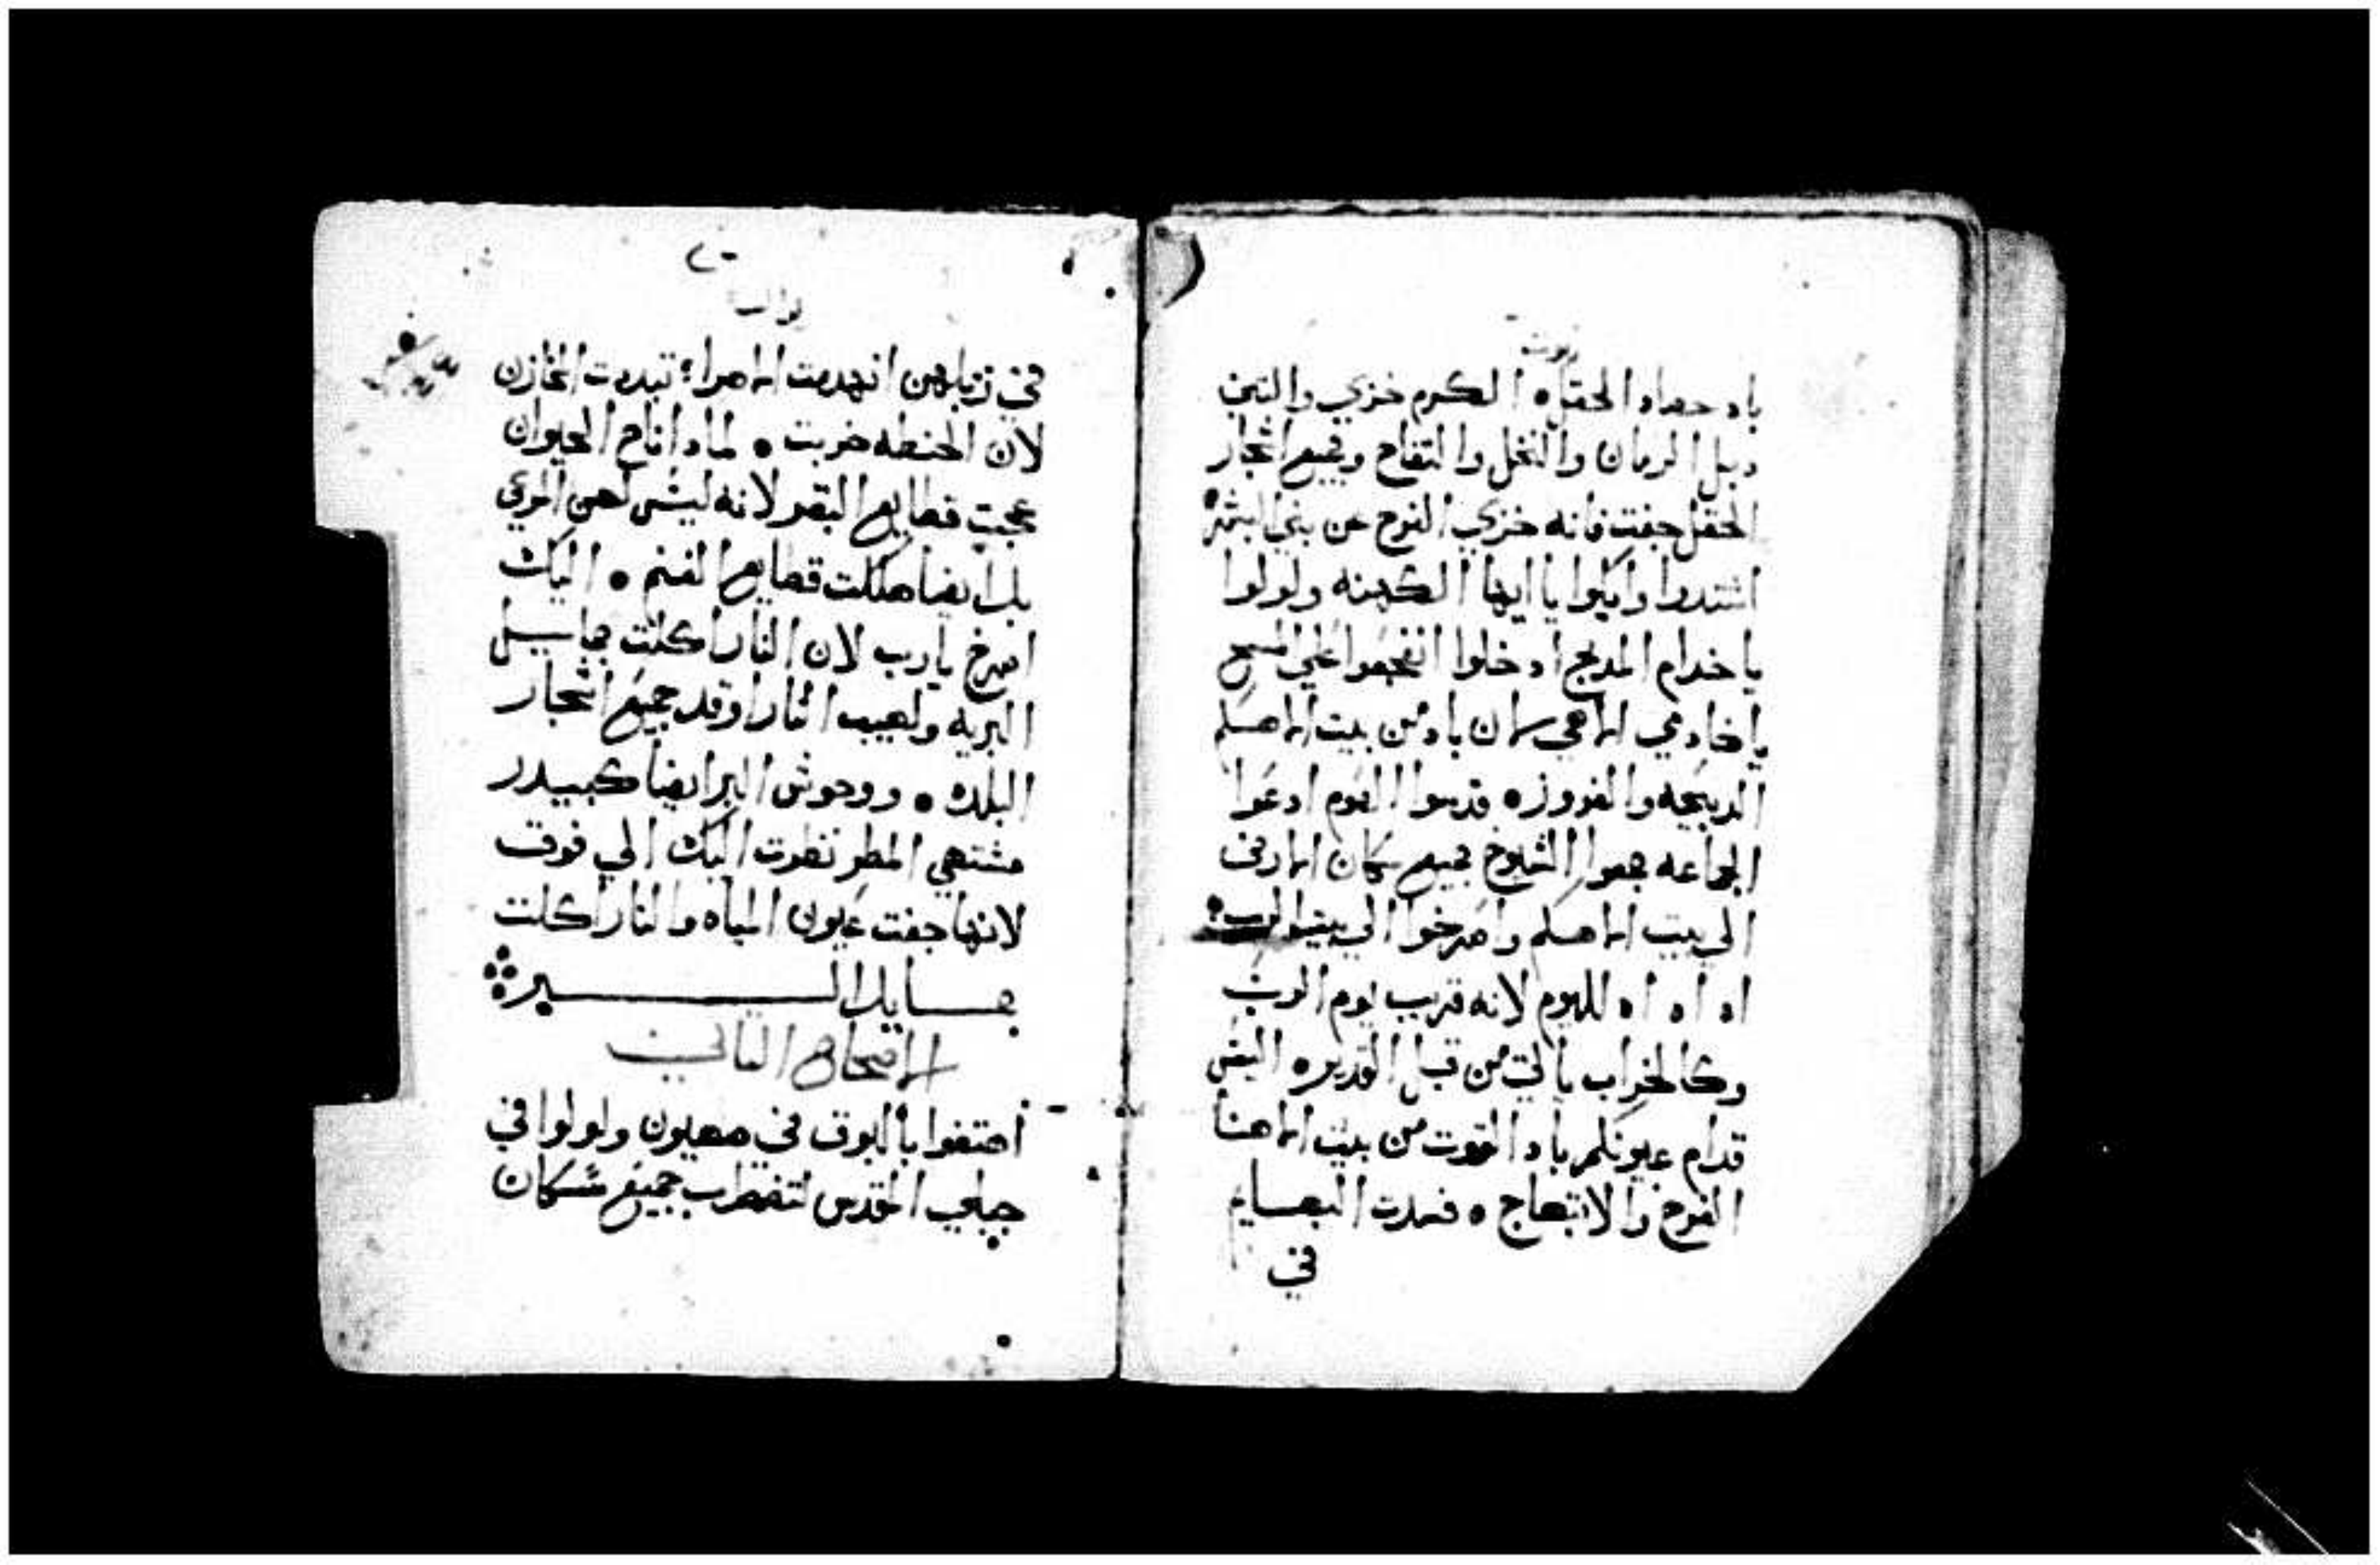 باد حصاد الحقل ه الكرم خزي والتين
دبل الرمان والنخل والتفاح وجميع اشجار
الحقل جفت فانه خزي الفرح عن بني البشر
اشتدوا وابكوا يا ايها الكهنه ولولوا
يا خدام المدبح ادخلوا انضجعوا علي المسح
يا خادمي الاهي لان باد من بيت الاهكم
الدبيحه والفروزه قدسوا الصوم ادعوا
الجماعه جمعوا الشيوخ جميع سكان الارض
الي بيت الاهكم واصرخوا الي بيت الرب
اه اه اه لليوم لانه قريب يوم الرب
وكالخراب ياتي من قبل القدير ه اليس
قدام عيونكم باد القوت من بيت الاهنا
الفرح والابتهاج ه فسدت البهايم
في
في زبلهن انهدمت الاهرا تبددت المخازن
لان الحنطه خربت ه لمادا ناح الحيوان
عجت قطايع البقر لانه ليس لهن المرعي
بل ايضا هلكت قطايع الغنم ه اليك
اصرخ يارب لان النار اكلت بهايسل
البريه ولهيب النار اوقد جميع اشجار
البلده ه ووحوش البر ايضا كبيدر
مشتهي المطر نظرت اليك الي فوق
لانها جفت عيون المياه والنار اكلت
بهايل البر
الاصحاح التاني
اهتفوا بالبوق في صهيون ولولوا في
جبلي المقدس لتضطرب جميع سكان